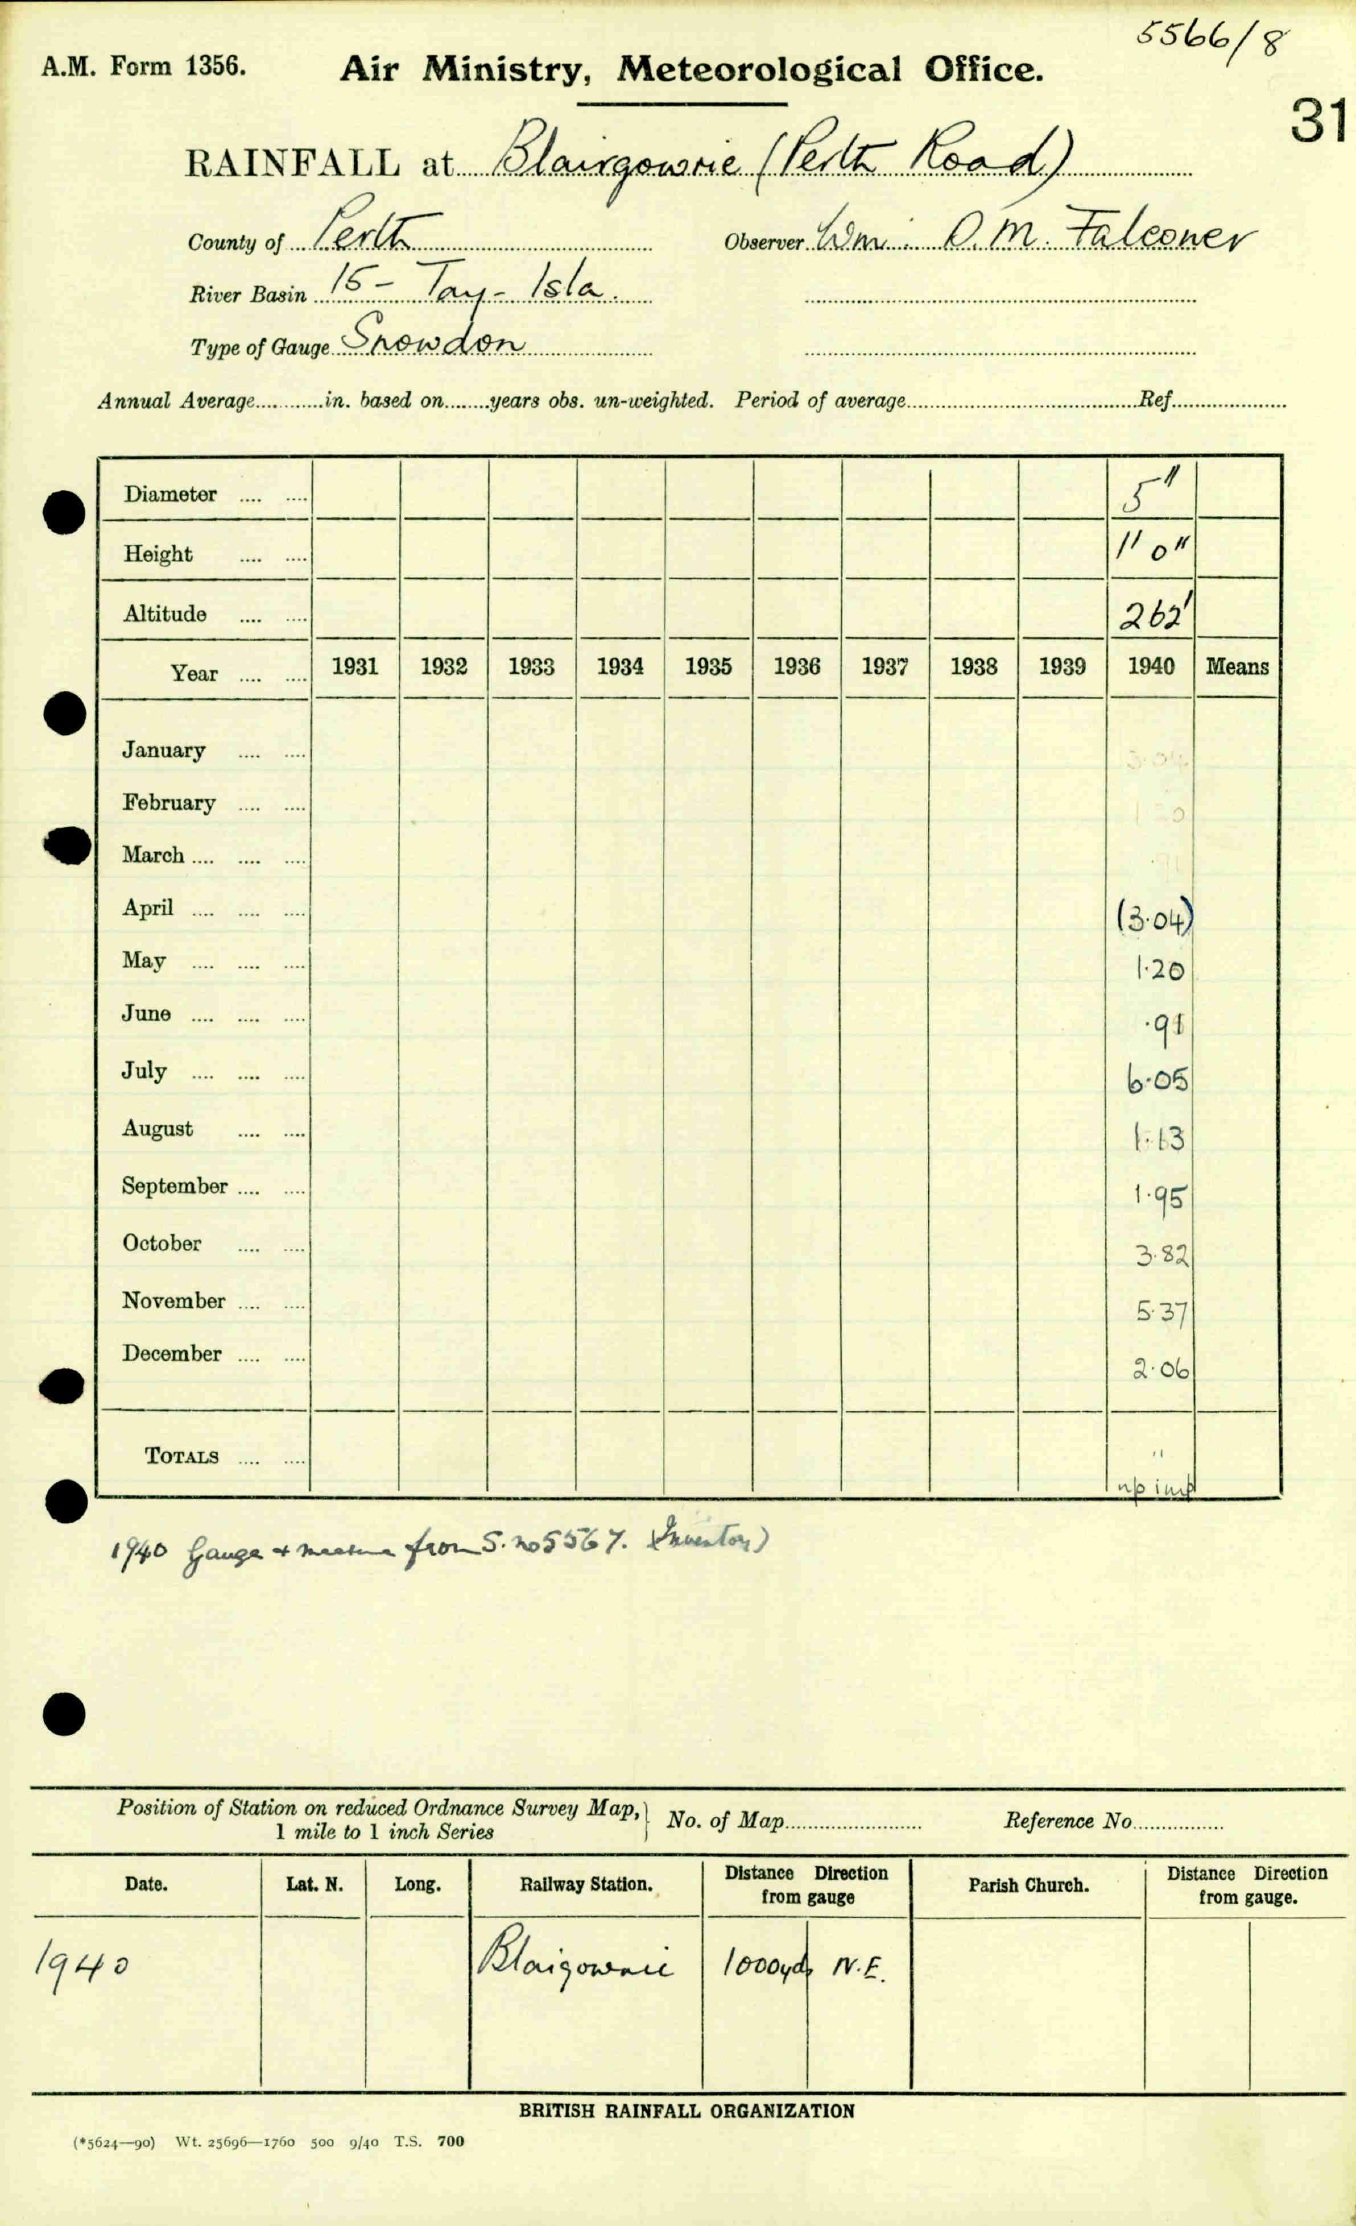 5566/8
A.M. Form 1356. Air Ministry, Meteorological Office.
31
RAINFALL at Blairgowrie (Perth Road)
County of Perth Observer Wm. O.M. Falconer
River Basin 15 - Tay - Isla.
Type of Gauge Snowdon
Annual Average............in. based on........years obs. un-weighted. Period of average........................................Ref....................
Diameter .... .... 5"
Height .... .... 1' 0"
Altitude .... .... 262'
Year .... .... 1931 1932 1933 1934 1935 1936 1937 1938 1939 1940 Means
January .... .... 3.04
February .... ....
March .... .... .... .91
April .... .... .... (3.04)
May .... .... .... 1.20
June .... .... .... .91
July .... .... .... 6.05
August .... .... 1.13
September .... .... 1.95
October .... .... 3.82
November .... .... 5.37
December .... .... 2.06
TOTALS .... .... "
np imp
1940 Gauge + measure from S. no 5567. (Inventory)
Position of Station on reduced Ordnance Survey Map, } No. of Map........................ Reference No................
1 mile to 1 inch Series
Date. Lat. N. Long. Railway Station. Distance Direction from gauge Parish Church. Distance Direction from gauge.
1940 Blairgowrie 1000yds N.E.
BRITISH RAINFALL ORGANIZATION
(*5624—90) Wt. 25696—1760 500 9/40 T.S. 700